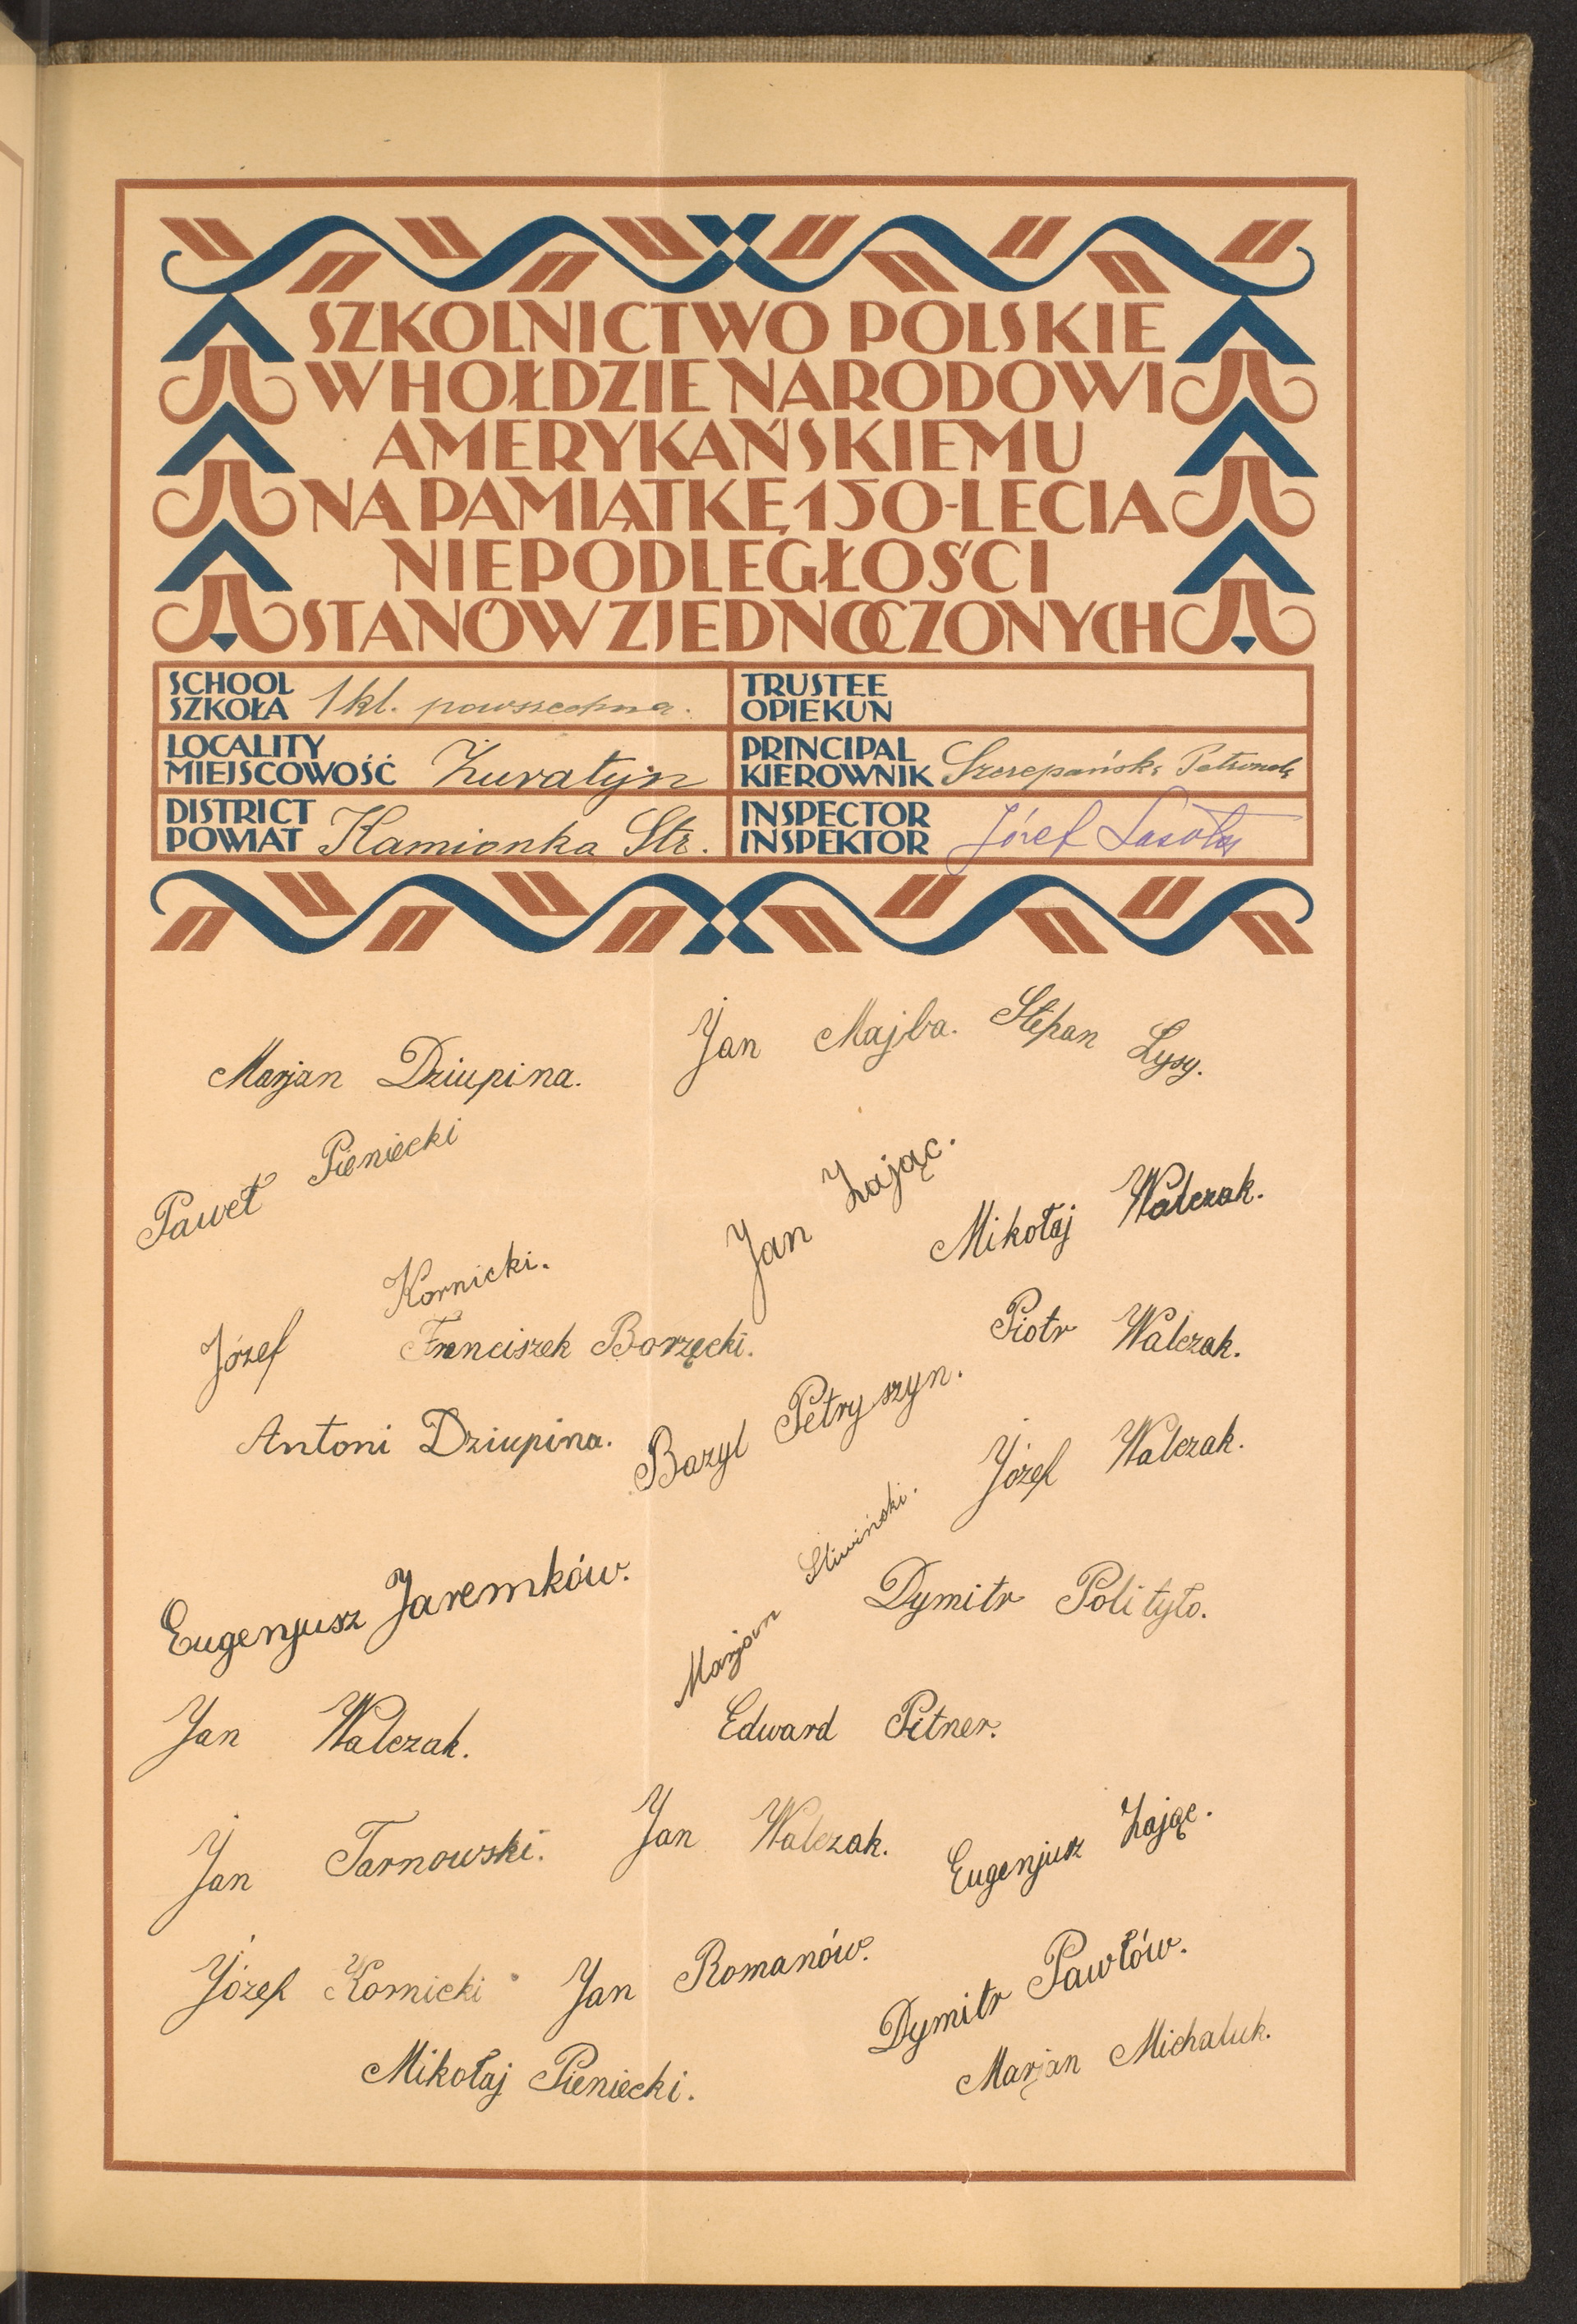 SZKOLNICTWO POLSKIE
W HOŁDZIE NARODOWI
AMERYKAŃSKIEMU
NA PAMIĄTKĘ 150-LECIA
NIEPODLEGŁOŚCI
STANÓW ZJEDNOCZONYCH
SCHOOL
SZKOŁA 1 kl. powszechna.
TRUSTEE
OPIEKUN
LOCALITY
MIEJSCOWOŚĆ Żuratyn
PRINCIPAL
KIEROWNIK Szczepańska Petronela
DISTRICT
POWIAT Kamionka Str.
INSPECTOR
INSPEKTOR Józef Lasota
Marjan Dziupina.
Jan Majba.
Stepan Łysy.
Paweł Pieniecki
Jan Zając.
Mikołaj Walczak.
Józef Kornicki.
Franciszek Borzęcki.
Piotr Walczak.
Antoni Dziupina.
Bazyl Petryszyn.
Józef Walczak.
Eugenjusz Jaremków.
Marjan Śliwiński.
Dymitr Polityło.
Jan Walczak.
Edward Pitner.
Jan Tarnowski.
Jan Walczak.
Eugenjusz Zając.
Józef Kornicki
Jan Romanów.
Dymitr Pawłów.
Mikołaj Pieniecki.
Marjan Michaluk.